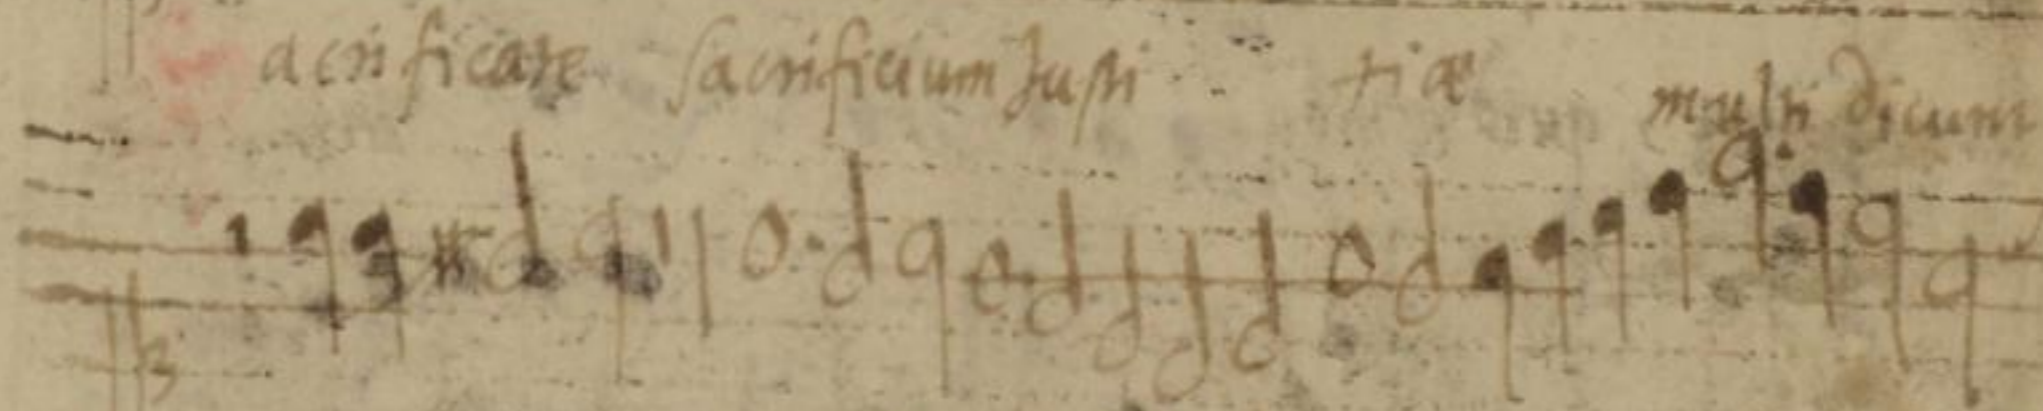 acrificate sacrificium Justi tiæ multi dicunt